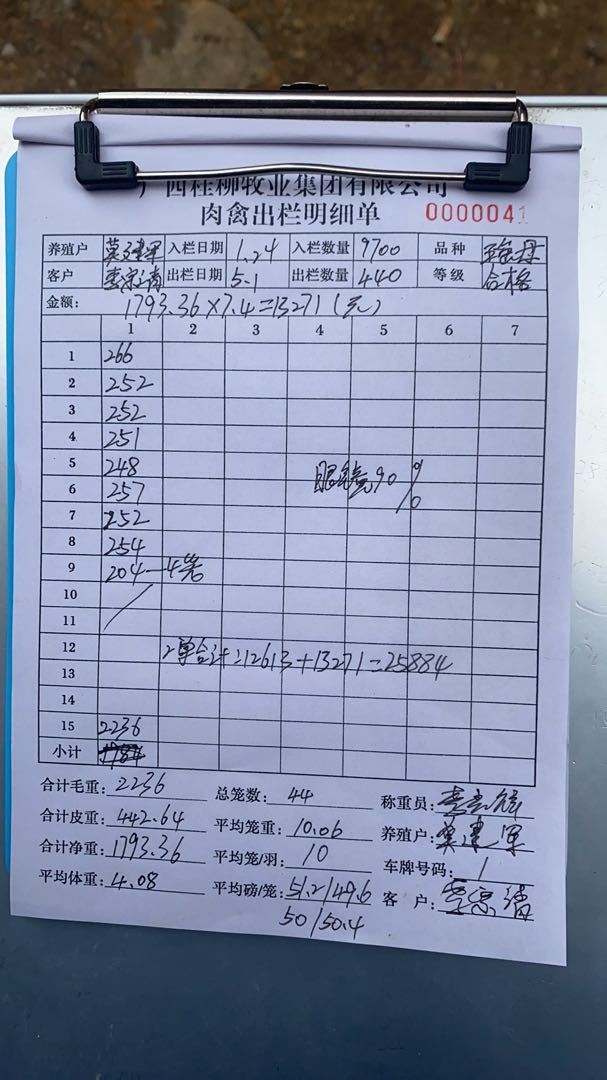 广西桂柳牧业集团有限公司
肉禽出栏明细单 0000041
养殖户 莫建军 入栏日期 1.24 入栏数量 9700 品种
客户 出栏日期 5.1 出栏数量 440 等级 合格
金额: 1793.36×7.4=13271(元)
1 2 3 4 5 6 7
1 266
2 252
3 252
4 251
5 248
6 257
7 252
8 254
9 204—4笼
10
11
12
13
14
15 2236
小计 1784
眼镜90%
2单合计:12613+13271=25884
合计毛重: 2236 总笼数: 44 称重员:
合计皮重: 442.64 平均笼重: 10.06 养殖户: 莫建军
合计净重: 1793.36 平均笼/羽: 10 车牌号码: 1
平均体重: 4.08 平均磅/笼: 51.2/49.6 客户:
50/50.4